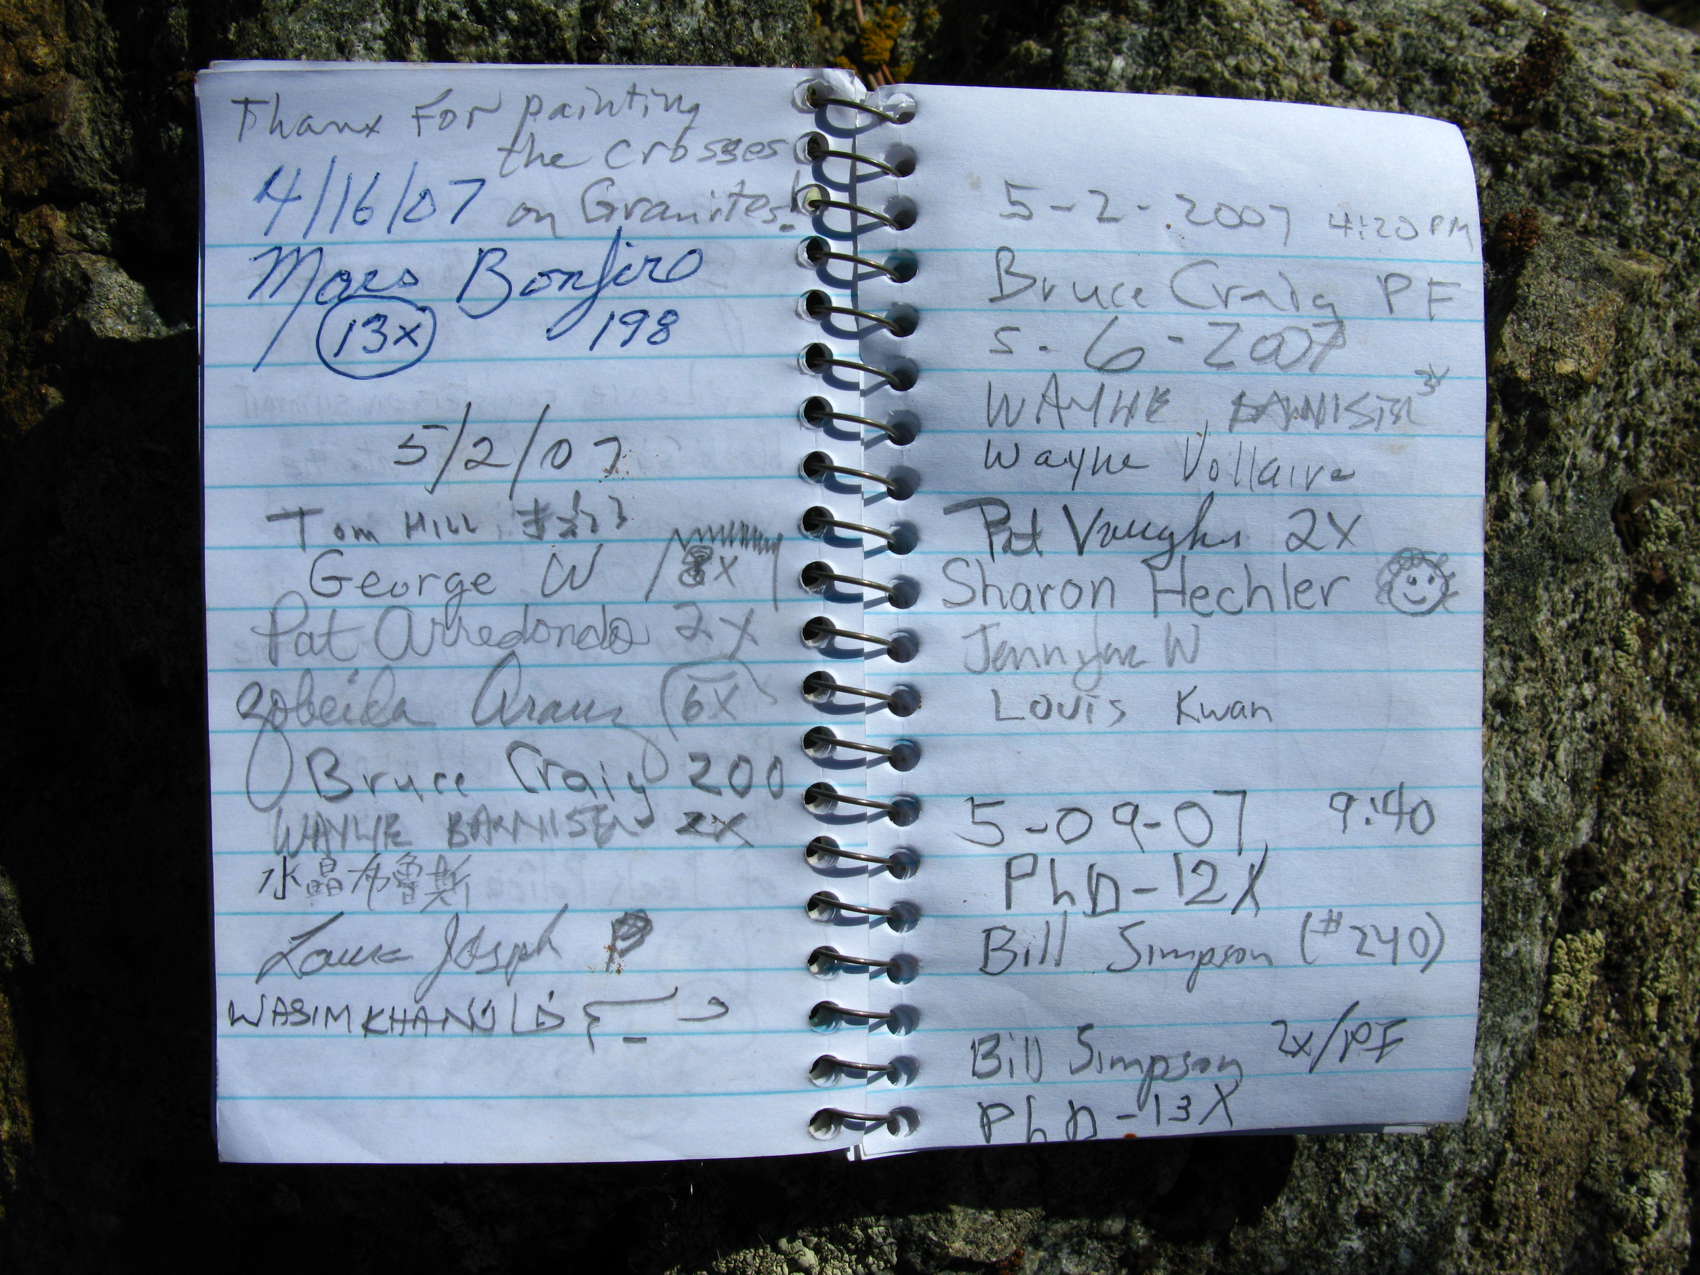 Thanx For painting
the crosses
on Granites!
4/16/07
Bonfiro
13x 198
5/2/07
Tom Hill
George W 8x
Pat Arredondo 2x
Zobeida Arauz 6x
Bruce Craig 200
WAYNE BANNISTER 2x
水晶布魯斯
Laura Joseph
WASIM KHAN
5-2-2007 4:20 PM
Bruce Craig PF
5-6-2007
WAYNE BANNISTER 3x
Wayne Vollaire
Pat Vaughn 2x
Sharon Hechler
W
Louis Kwan
5-09-07 9:40
PhD-12X
Bill Simpson (#240)
Bill Simpson 2x/PF
PhD-13X